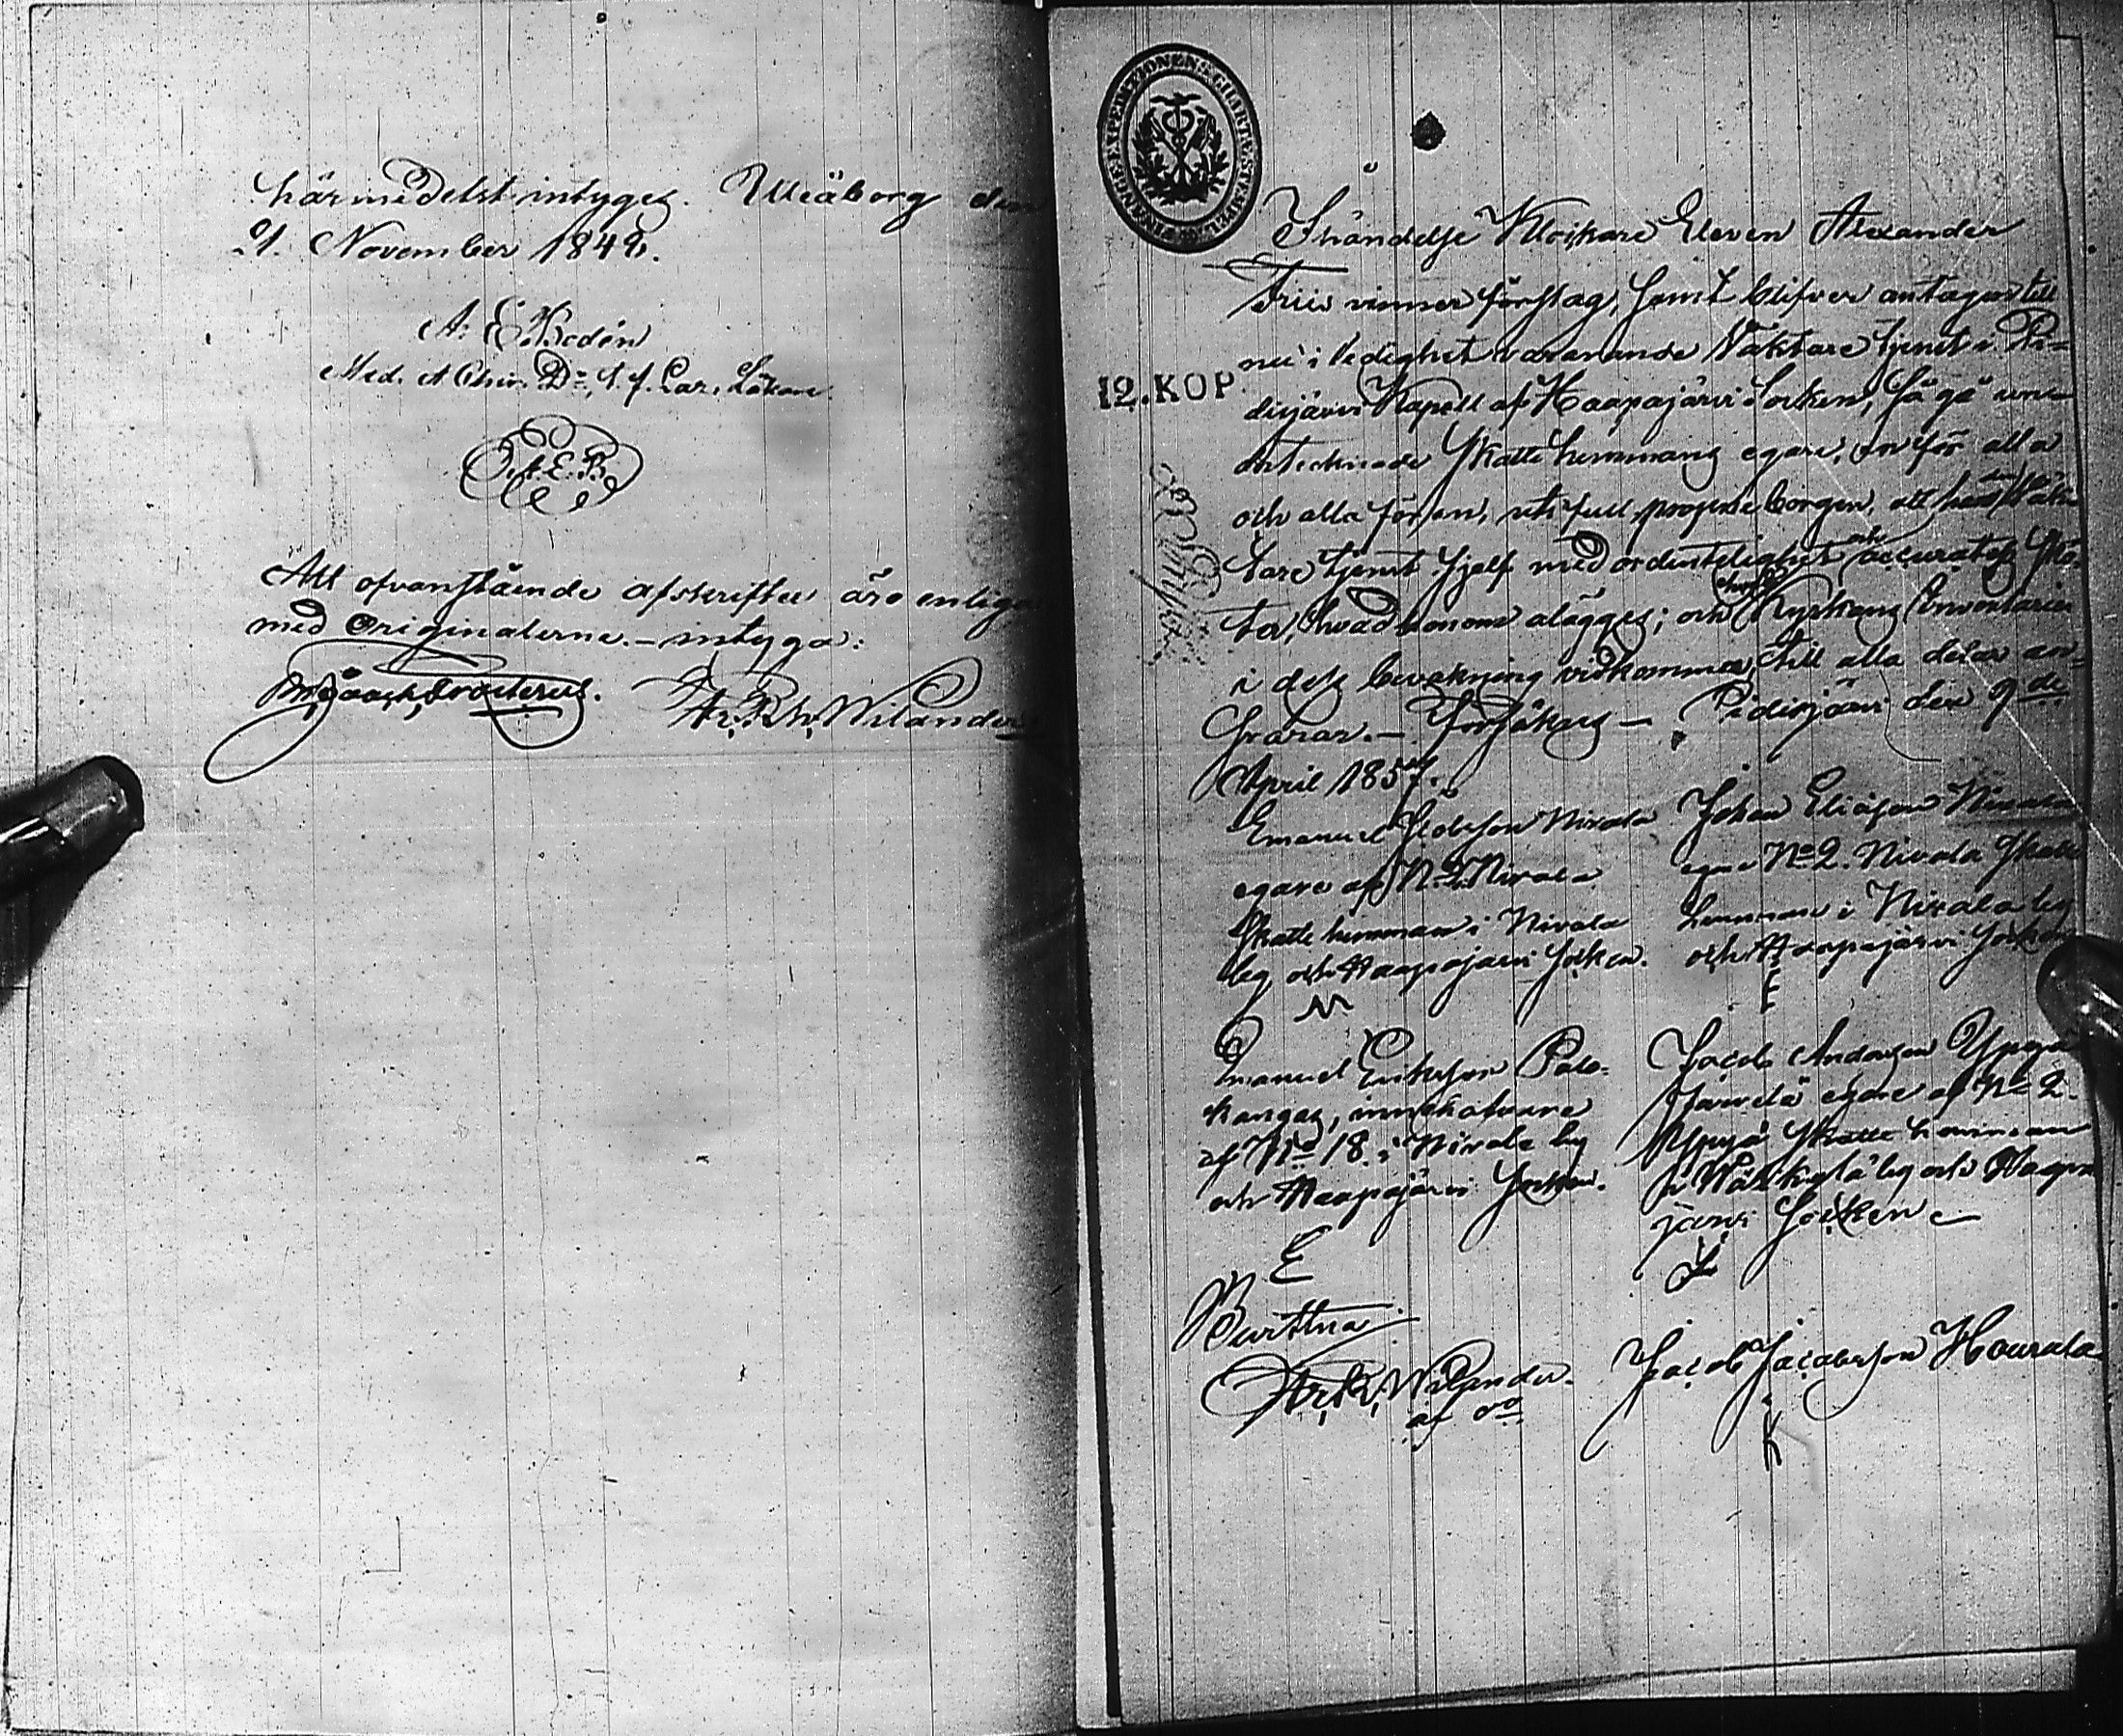 härmedelst intygas. Uleåborg den
21. November 1848.
A. E. Bodén
Med. & Chir. Dr, t. f. Läkare.
A. E. B.
Att ofvanstående afskrifter äro enliga
med Originalerne. – intyga:
Wilander
FINANCE EXPEDITIONENS CHARTÆ STEMPEL
12. KOP.
I händelse Klockare Eleven Alexander
Friis vinner förslag, samt blifver antagen till
nu i ledighet varande Väktare tjenst i Pi-
disjärvi Kapell af Haapajärvi Socken, så gå undertecknade Skattehemmans egare, en för alla
och alla för en, uti full proprie borgen, att han
tare tjenst sjelf med ordentelighet och accuratess skö-
ter, hvad honom ålägges; och Kyrkans Inventarier
i dess bevakning vidkommer, till alla delar an-
svarar. – Försäkras – Pidisjärvi den 9de
April 1857.
Emanuel Nivala
egare af No Nivala
Skatte hemman i Nivala
by och Haapajärvi Socken.
Johan Eliasson Nivala
egare No 2. Nivala Skatte
hemman i Nivala by
och Haapajärvi Socken
Emanuel Eriksson Palo-
kangas, innehafvare
af No 18. i Nivala by
och Haapajärvi Socken.
E
Jacob Andersson Yppä
Järvelä egare af No 2.
Yppä Skatte hemman
i by och Haapa
järvi Socken
Bevittna
Wilander.
Jacob Jacobsson Hourala